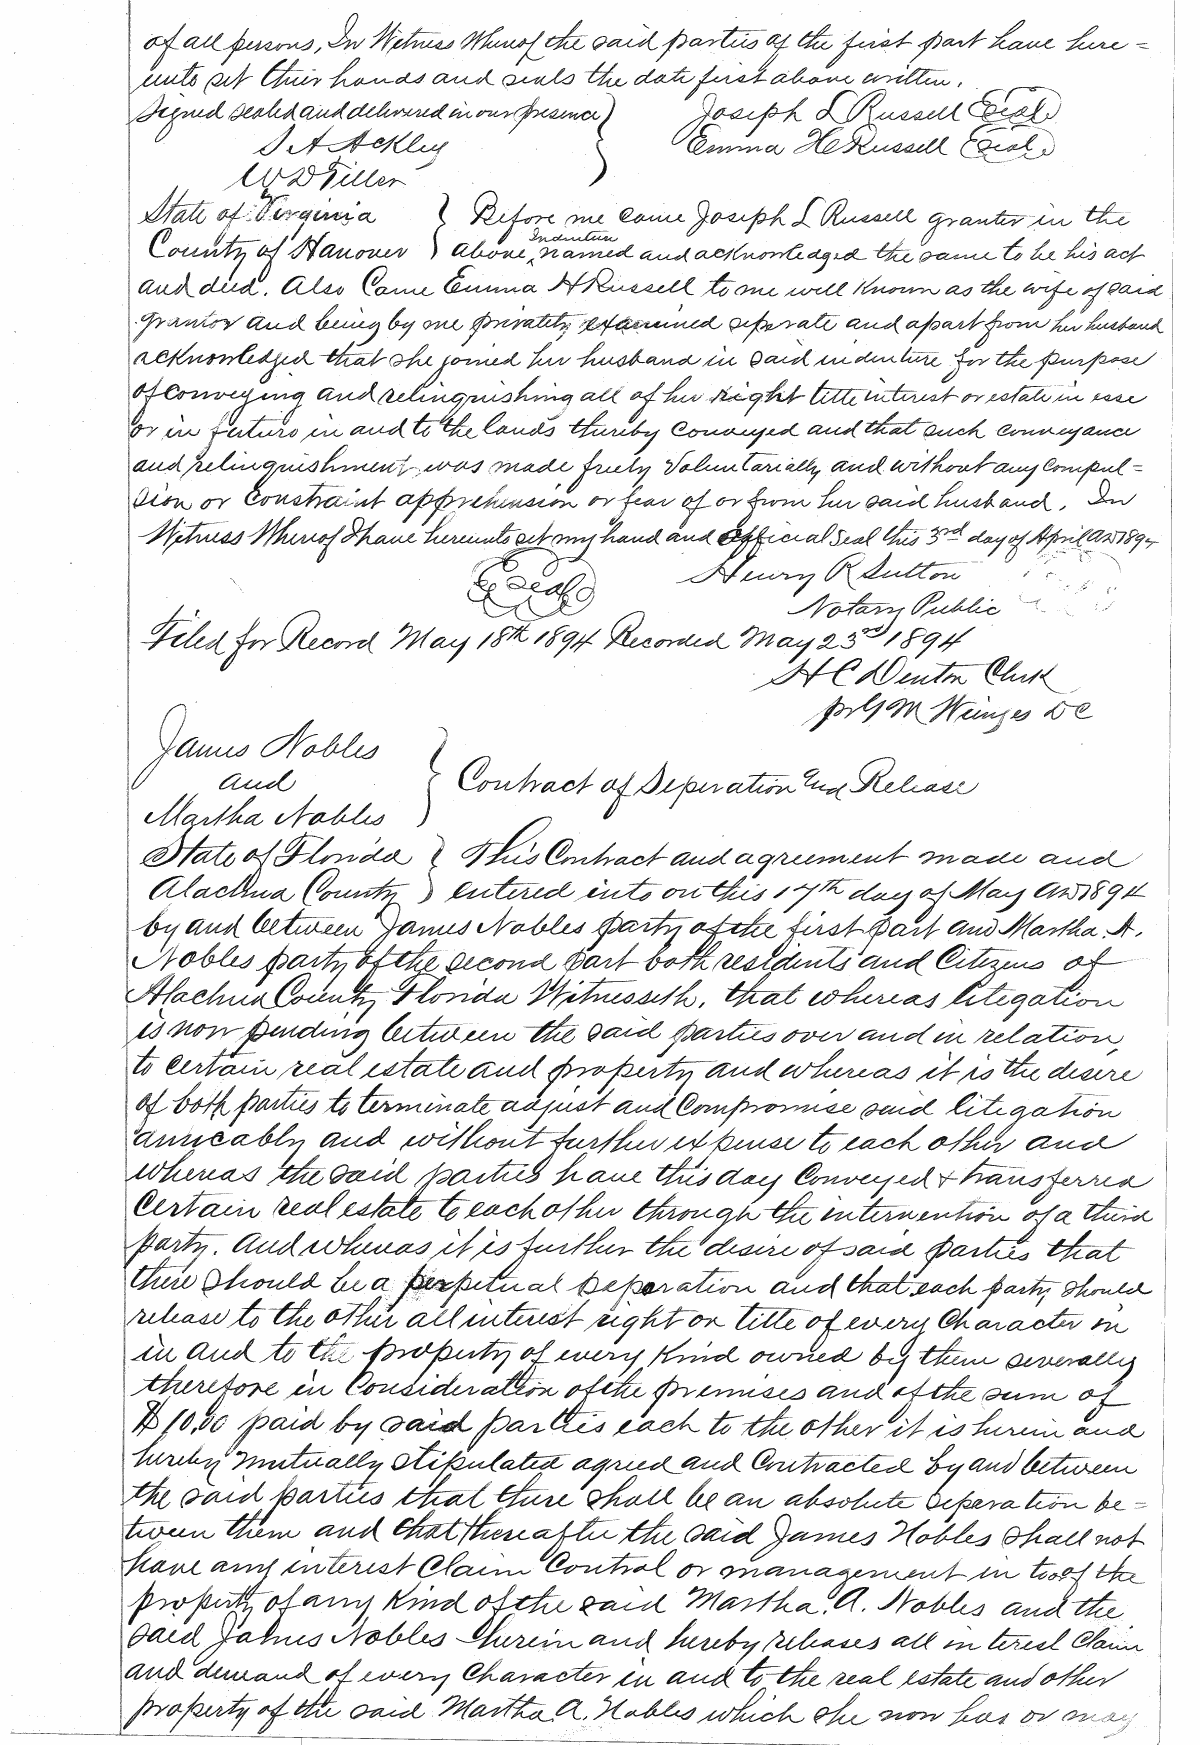 of all persons, In Witness Whereof the said parties of the first part have here =
unto set their hands and seals the date first above written.
Signed sealed and delivered in our presence } Joseph L Russell (Seal)
S A Ackley Emma H Russell (Seal)
W D Filler
State of Virginia } Before me came Joseph L Russell granter in the
County of Hanover } above Indenture named and acknowledged the same to be his act
and deed. Also Came Emma H Russell to me well known as the wife of said
grantor and being by me privately examined seperate and apart from her husband
acknowledged that she joined her husband in said indenture for the purpose
of conveying and relinquishing all of her right title interest or estate in esse
or in futuro in and to the lands thereby conveyed and that such conveyance
and relinquishment was made freely Voluntarially and without any compul =
sion or constraint apprehension or fear of or from her said husband. In
Witness Whereof I have hereunto set my hand and official seal this 3rd day of April AD 1894
(Seal) Henry R Sutton
Notary Public
Filed for Record May 18th 1894 Recorded May 23rd 1894
H C Denton Clerk
pr G M DC
James Nobles
and } Contract of Seperation and Release
Martha Nobles
State of Florida } This Contract and agreement made and
Alachua County } entered into on this 17th day of May AD 1894
by and between James Nobles party of the first part and Martha. A.
Nobles party of the second part both residents and Citizens of
Alachua County Florida Witnesseth, that whereas litegation
is now pending between the said parties over and in relation,
to certain real estate and property and whereas it is the desire
of both parties to terminate adjust and Compromise said litegation
amicably and without further expense to each other and
whereas the said parties have this day Conveyed & transferred
Certain real estate to each other through the intervention of a third
party. And whereas it is further the desire of said parties that
there should be a perpetual seperation and that each party should
release to the other all interest right or title of every Character in
in and to the property of every Kind owned by them severally
therefore in Consideration of the premises and of the sum of
$10.00 paid by said parties each to the other it is herein and
hereby mutually stipulated agreed and Contracted by and between
the said parties that there shall be an absolute seperation be =
tween them and that thereafter the said James Nobles shall not
have any interest Claim Control or management in to of the
property of any Kind of the said Martha. A. Nobles and the
said James Nobles herein and hereby releases all interest Claim
and demand of every Character in and to the real estate and other
property of the said Martha A. Nobles which she now has or may